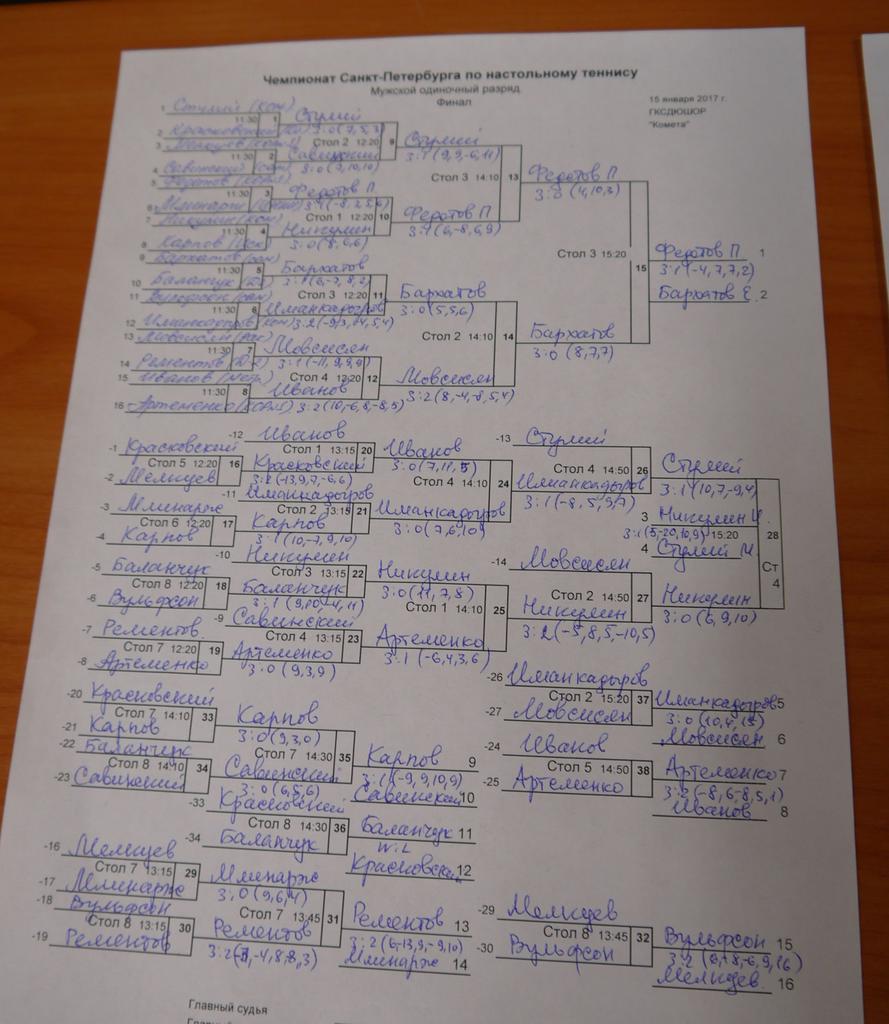 Чемпионат Санкт-Петербурга по настольному теннису
Мужской одиночный разряд
Финал
15 января 2017 г.
ГКСДЮШОР
"Комета"
1 Стулий (Ком)
11:30 1 Стулий
2 Красковский 3:0 (7,5,3)
3 Стол 2 12:20 9 Стулий
11:30 2 Савинский 3:1 (9,9,-6,11)
4 Савинский 3:0 (7,10,10)
Стол 3 14:10 13 Федотов П
5 Федотов 3:0 (4,10,3)
11:30 3 Федотов П
6 Мминарж
Стол 1 12:20 10 Федотов П
7 Никулин (Ком) 3:1 (6,-8,6,9)
11:30 4 Никулин
8 Карпов 3:0 (8,6,6)
Стол 3 15:20 15 Федотов П 1
3:1 (-4,7,7,2)
Бархатов Е. 2
9 Бархатов
11:30 5 Бархатов
10 Баланчук
Стол 3 12:20 11 Бархатов
11 Вульфсон 3:0 (5,5,6)
11:30 6 Иманкадыров
12 Иманкадыров
Стол 2 14:10 14 Бархатов
13 Мовсисян 3:0 (8,7,7)
11:30 7 Мовсисян
14 Рементов 3:1 (-11,9,9,9)
Стол 4 12:20 12 Мовсисян
15 Иванов 3:2 (8,-4,-8,5,4)
11:30 8 Иванов
16 Артеменко 3:2 (10,-6,8,-8,5)
-1 Красковский
Стол 5 12:20 16 Красковский
-2 Мелкуев
-12 Иванов
Стол 1 13:15 20 Иванов
3:0 (7,11,5)
-3 Мминарж
Стол 6 12:20 17 Карпов
-4 Карпов 3:1 (10,-7,9,10)
-11 Иманкадыров
Стол 2 13:15 21 Иманкадыров
3:0 (7,6,10)
Стол 4 14:10 24 Иманкадыров
3:1 (-8,5,9,7)
-13 Стулий
Стол 4 14:50 26 Стулий
3:1 (10,7,-9,4)
3 Никулин И.
3:1 (5,-20,10,9) 15:20 28
4 Стулий И. Ст 4
-5 Баланчук
Стол 8 12:20 18 Баланчук
-6 Вульфсон 3:1 (9,10,-4,11)
-10 Никулин
Стол 3 13:15 22 Никулин
3:0 (11,7,8)
-7 Рементов
Стол 7 12:20 19 Артеменко
-8 Артеменко 3:0 (9,3,9)
-9 Савинский
Стол 4 13:15 23 Артеменко
3:1 (-6,4,3,6)
Стол 1 14:10 25 Никулин
3:2 (-5,8,5,-10,5)
-14 Мовсисян
Стол 2 14:50 27 Никулин
3:0 (6,9,10)
-20 Красковский
Стол 7 14:10 33 Карпов
-21 Карпов 3:0 (9,3,0)
-22 Баланчук
Стол 8 14:10 34 Савинский
-23 Савинский 3:0 (6,5,6)
Стол 7 14:30 35 Карпов 9
3:1 (-9,9,10,9)
Савинский 10
-33 Красковский
Стол 8 14:30 36 Баланчук 11
-34 Баланчук W:L
Красковский 12
-26 Иманкадыров
Стол 2 15:20 37 Иманкадыров 5
-27 Мовсисян
Мовсисян 6
-24 Иванов
Стол 5 14:50 38 Артеменко 7
-25 Артеменко 3:2 (-8,6,-8,5,1)
Иванов 8
-16 Мелкуев
Стол 7 13:15 29 Мминарж
-17 Мминарж 3:0 (9,6,4)
-18 Вульфсон
Стол 8 13:15 30 Рементов
-19 Рементов
Стол 7 13:45 31 Рементов 13
3:2 (6,-13,9,-9,10)
Мминарж 14
-29 Мелкуев
Стол 8 13:45 32 Вульфсон 15
-30 Вульфсон
Мелкуев 16
Главный судья